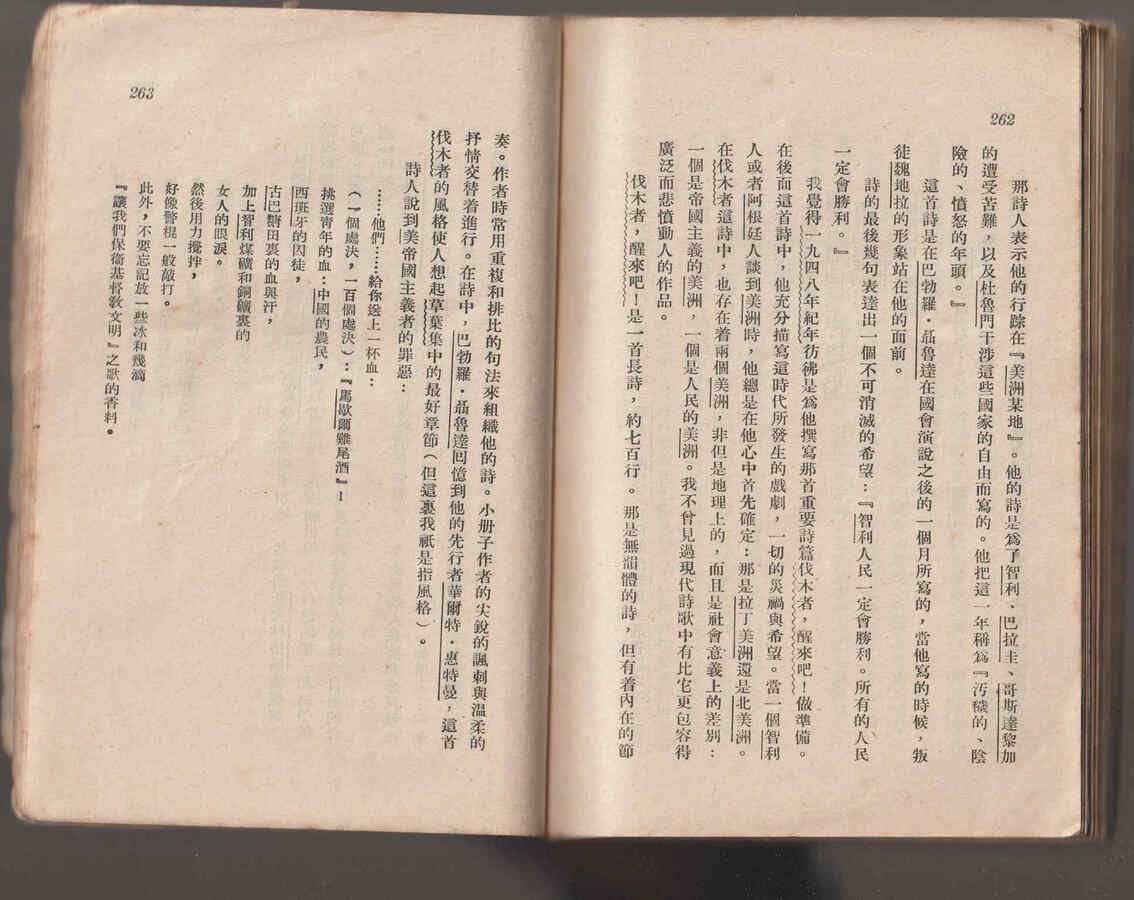 262
那詩人表示他的行踪在『美洲某地』。他的詩是爲了智利、巴拉圭、哥斯達黎加
的遭受苦難，以及杜魯門干涉這些國家的自由而寫的。他把這一年稱爲『汚穢的、陰
險的、憤怒的年頭。』
這首詩是在巴勃羅·聶魯達在國會演說之後的一個月所寫的，當他寫的時候，叛
徒魏地拉的形象站在他的面前。
詩的最後幾句表達出一個不可消滅的希望：『智利人民一定會勝利。所有的人民
一定會勝利。』
我覺得一九四八年紀年彷彿是爲他撰寫那首重要詩篇伐木者，醒來吧！做準備。
在後面這首詩中，他充分描寫這時代所發生的戲劇，一切的災禍與希望。當一個智利
人或者阿根廷人談到美洲時，他總是在他心中首先確定：那是拉丁美洲還是北美洲。
在伐木者這詩中，也存在着兩個美洲，非但是地理上的，而且是社會意義上的差別：
一個是帝國主義的美洲，一個是人民的美洲。我不曾見過現代詩歌中有比它更包容得
廣泛而悲憤動人的作品。
伐木者，醒來吧！是一首長詩，約七百行。那是無韻體的詩，但有着內在的節
263
奏。作者時常用重複和排比的句法來組織他的詩。小册子作者的尖銳的諷刺與温柔的
抒情交替着進行。在詩中，巴勃羅·聶魯達回憶到他的先行者華爾特·惠特曼，這首
伐木者的風格使人想起草葉集中的最好章節（但這裏我祇是指風格）。
詩人說到美帝國主義者的罪惡：
……他們……給你送上一杯血：
（一個處決，一百個處決）：『馬歇爾雞尾酒』！
挑選靑年的血：中國的農民，
西班牙的囚徒，
古巴糖田裏的血與汗，
加上智利煤礦和銅礦裏的
女人的眼淚。
然後用力攪拌，
好像警棍一般敲打。
此外，不要忘記放一些冰和幾滴
『讓我們保衛基督敎文明』之歌的香料。